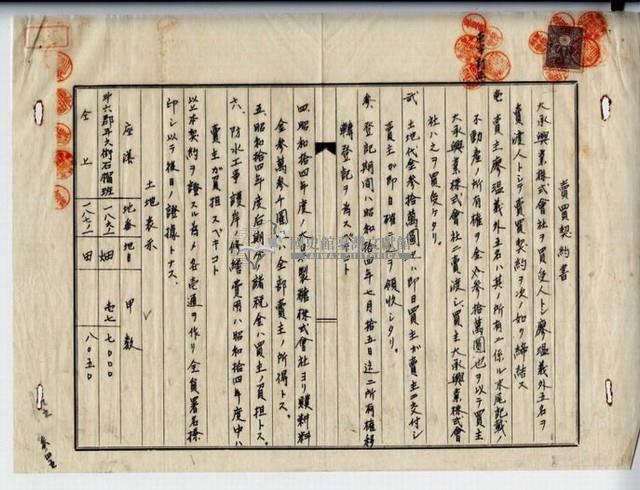 賣買契約書
大承興業株式會社ヲ買受人トシ廖溫義外五名ヲ
賣渡人トシテ賣買契約ヲ次ノ如ク締結ス
壱、賣主廖溫義外五名ハ其ノ所有ニ係ル末尾記載ノ
不動產ノ所有權ヲ金貳參拾萬圓也ヲ以テ買主
大承興業株式會社ニ賣渡シ買主大承興業株式會
社ハ之ヲ買受ケタリ。
貳、土地代金參拾萬圓ハ即日買主ガ賣主ニ交付シ
賣主ガ即日確ニ之ヲ領收シタリ。
參、登記期間ハ昭和拾四年七月拾五日迄ニ所有權移
轉登記ヲ為スコト
四、昭和拾四年度ノ大日本製糖株式會社ヨリ購料
金參萬參千圓ハ全部賣主ノ所得トス。
五、昭和拾四年度后期分ノ諸稅金ハ買主ノ負担トス。
六、防水工事護岸ノ修繕費用ハ昭和拾四年度中ハ
賣主ガ負担スベキコト
以上本契約ヲ證スル為メ各壱通ヲ作リ全員署名捺
印シ以テ後日ノ證據トナス。
土地表示
座落 地番 地目 甲數
斗六郡斗六街石榴班 一八六ノ一 畑 七、七〇〇〇
仝上 一八七ノ一 田 八〇五〇
國史館臺灣文獻館
TAIWAN HISTORICA